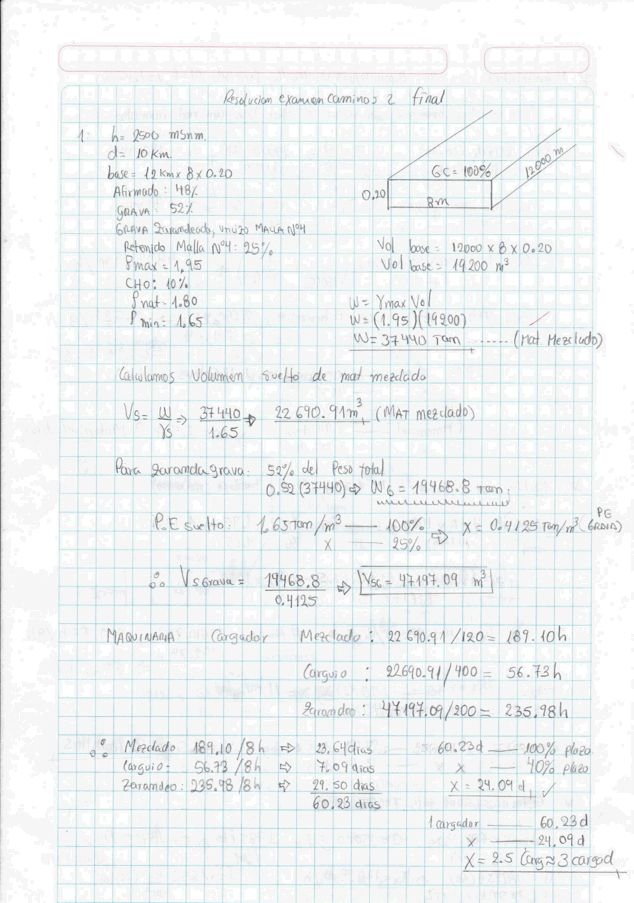 Resolucion examen caminos 2 final
1. h= 2500 msnm.
d= 10 Km.
base= 12 Km x 8 x 0.20
Afirmado: 48%
GRAVA: 52%
GRAVA Zarandeado, utilizo MALLA Nº4
Retenido Malla Nº4: 25%
ρmax = 1.95
CHO: 10%
ρnat = 1.80
ρmin: 1.65
GC = 100%
0.20
8m
12000 m
Vol base = 12000 x 8 x 0.20
Vol base = 19200 m³
W = γmax Vol
W = (1.95)(19200)
W = 37440 Tan ..... (Mat. Mezclado)
Calculamos Volumen suelto de mat mezclado
Vs = W/γs ⇒ 37440/1.65 ⇒ 22 690.91 m³ (MAT mezclado)
Para zaranda grava: 52% del Peso total
0.52 (37440) ⇒ WG = 19468.8 Tan.
P.E suelto: 1.65 Tan/m³ — 100%
x — 25%
⇒ X = 0.4125 Tan/m³ (PE GRAVA)
∴ Vs Grava = 19468.8/0.4125 ⇒ VSG = 47197.09 m³
MAQUINARIA: Cargador Mezclado: 22 690.91/120 = 189.10 h
Carguio: 22690.91/400 = 56.73 h
Zarandeo: 47197.09/200 = 235.98 h
∴ Mezclado 189.10/8h ⇒ 23.64 dias
Carguio- 56.73/8h ⇒ 7.09 dias
Zarandeo: 235.98/8h ⇒ 29.50 dias
60.23 dias
60.23d — 100% plazo
x — 40% plazo
X = 24.09 d ✓
1 cargador — 60.23 d
X — 24.09 d
X = 2.5 Carg ≈ 3 cargad